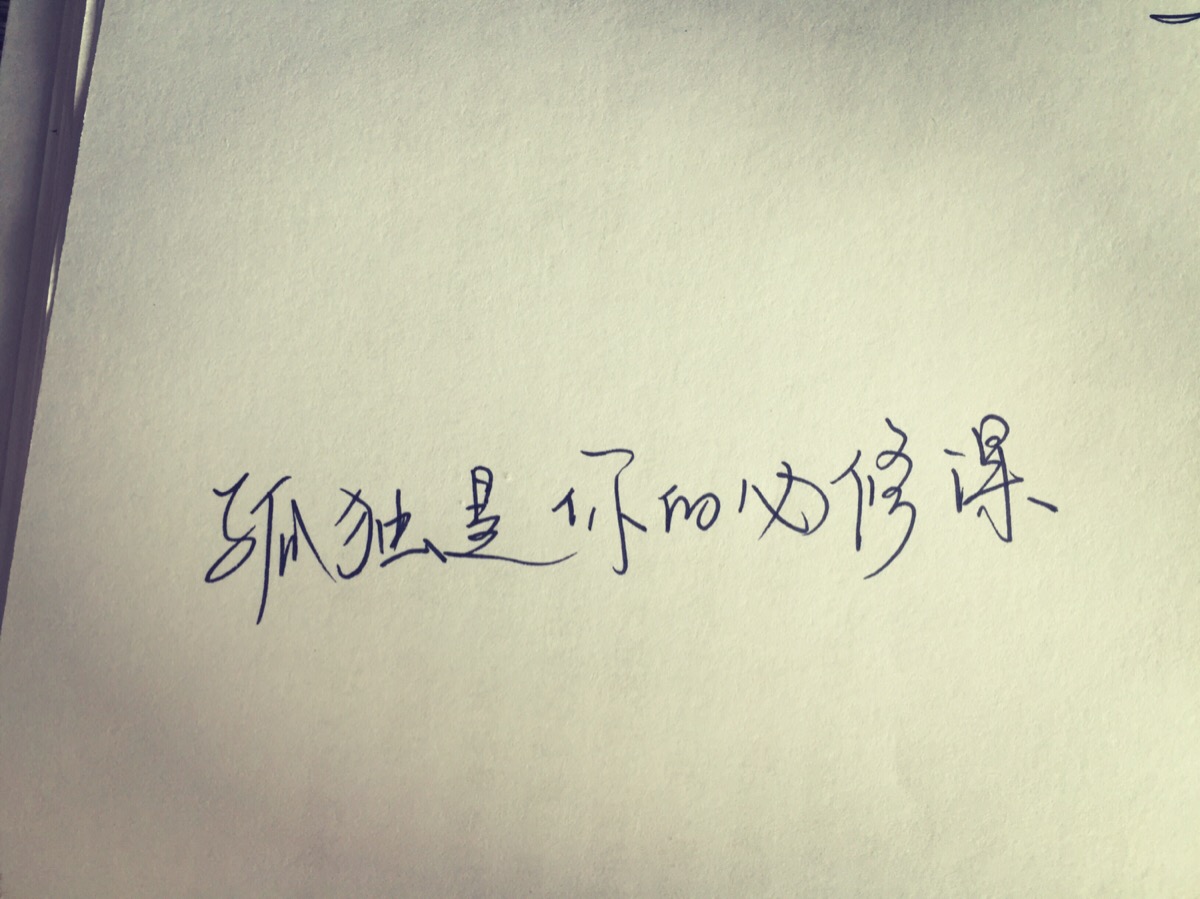 孤独是你的必修课